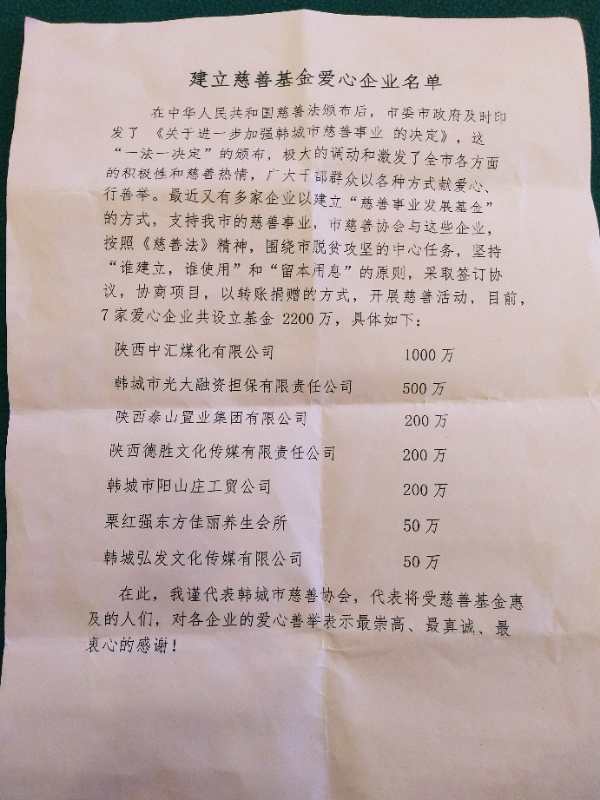 建立慈善基金爱心企业名单
在中华人民共和国慈善法颁布后，市委市政府及时印
发了 《关于进一步加强韩城市慈善事业 的决定》，这
“一法一决定”的颁布，极大的调动和激发了全市各方面
的积极性和慈善热情，广大干部群众以各种方式献爱心、
行善举。最近又有多家企业以建立“慈善事业发展基金”
的方式，支持我市的慈善事业，市慈善协会与这些企业，
按照《慈善法》精神，围绕市脱贫攻坚的中心任务，坚持
“谁建立，谁使用”和“留本用息”的原则，采取签订协
议，协商项目，以转账捐赠的方式，开展慈善活动，目前，
7 家爱心企业共设立基金 2200 万，具体如下：
陕西中汇煤化有限公司 1000 万
韩城市光大融资担保有限责任公司 500 万
陕西泰山置业集团有限公司 200 万
陕西德胜文化传媒有限责任公司 200 万
韩城市阳山庄工贸公司 200 万
栗红强东方佳丽养生会所 50 万
韩城弘发文化传媒有限公司 50 万
在此，我谨代表韩城市慈善协会，代表将受慈善基金惠
及的人们，对各企业的爱心善举表示最崇高、最真诚、最
衷心的感谢！